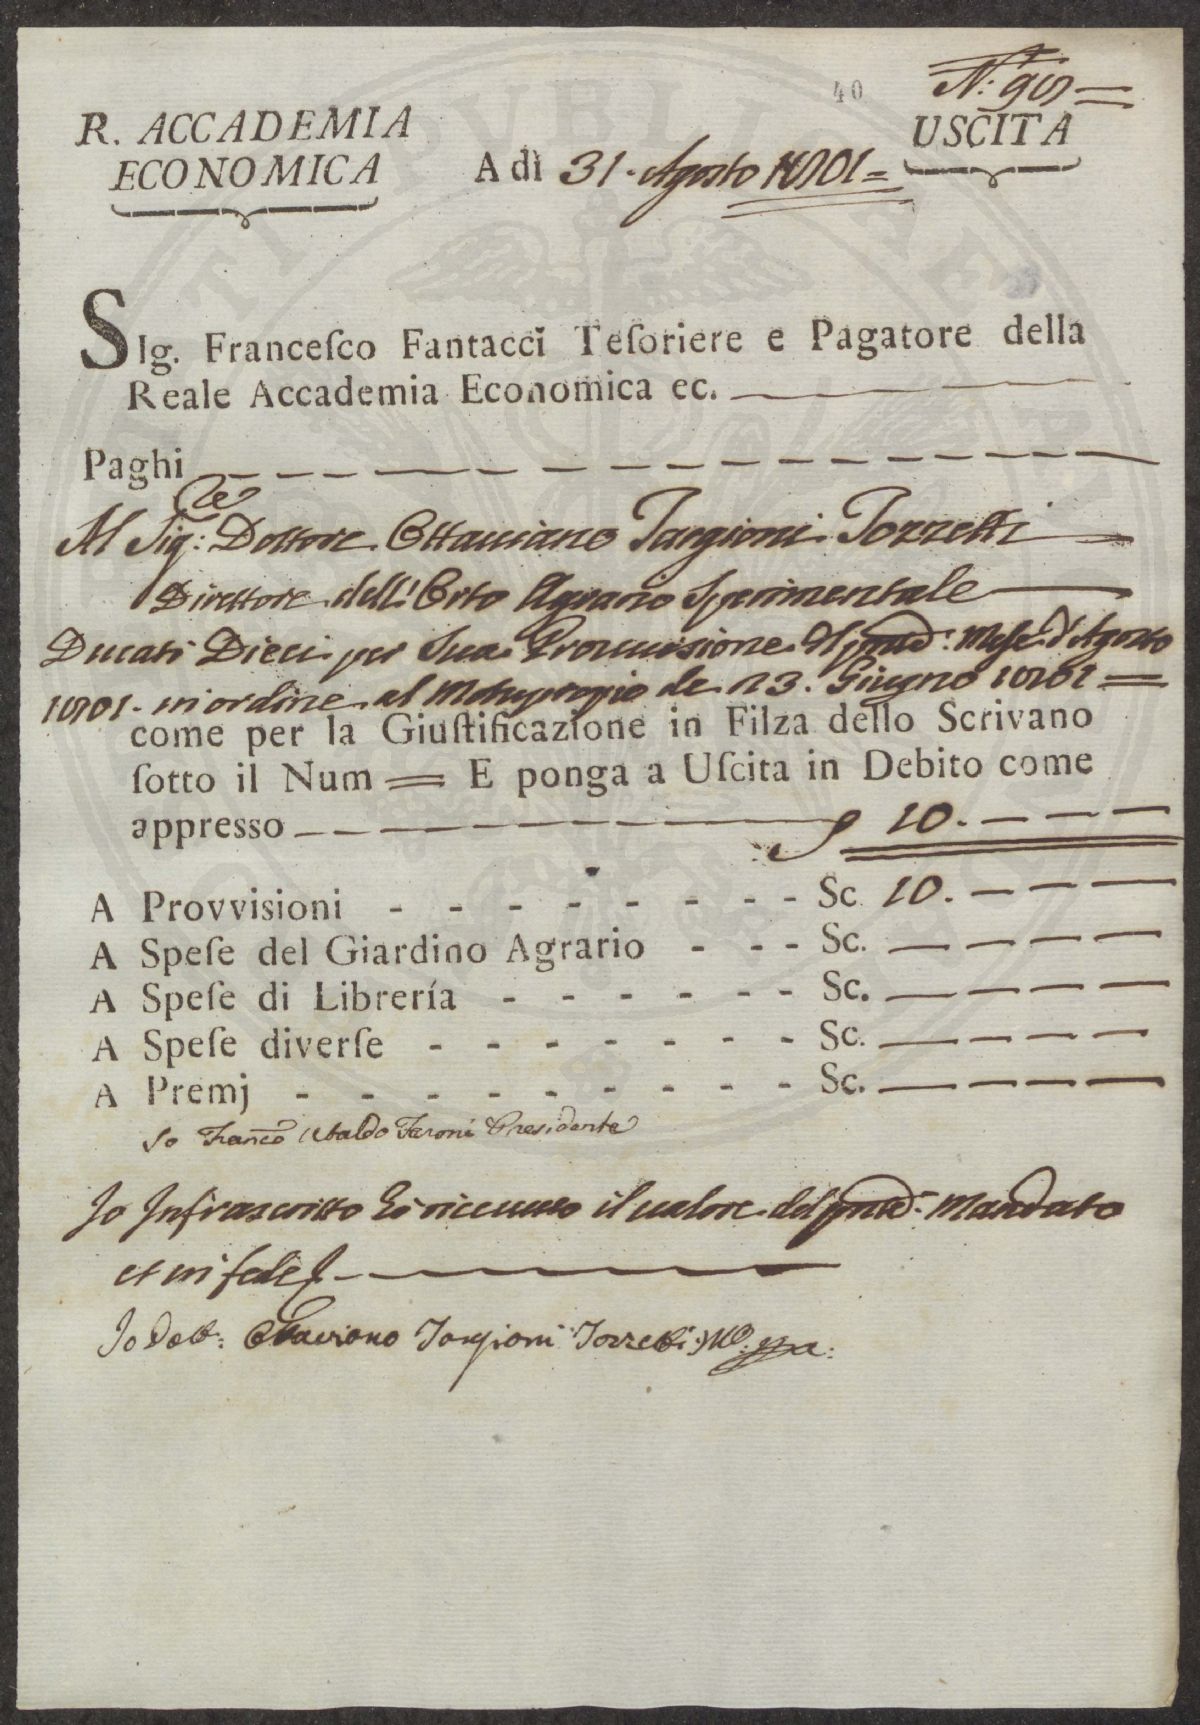 40
N: 98
R. ACCADEMIA
ECONOMICA
A dì 31. Agosto 1801
USCITA
SIg. Franceſco Fantacci Teſoriere e Pagatore della
Reale Accademia Economica ec.
Paghi
Al Sig:re Dottore Ottaviano Targioni Tozzetti
Direttore dell'Orto Agrario Sperimentale
Ducati Dieci per Sua Provvisione del pnte: Mese d'Agosto
1801. in ordine al Motuproprio de 23. Giugno 1801
come per la Giuſtificazione in Filza dello Scrivano
ſotto il Num = E ponga a Uſcita in Debito come
appresso 10.
A Provvisioni Sc. 10.
A Speſe del Giardino Agrario Sc.
A Speſe di Librería Sc.
A Speſe diverſe Sc.
A Premj Sc.
Io Franco Ubaldo Feroni Presidente
Io Infrascritto hò ricevuto il valore del pnte: Mandato
et in fede
Io Dott: Ottaviano Targioni Tozzetti Mo: ppa: